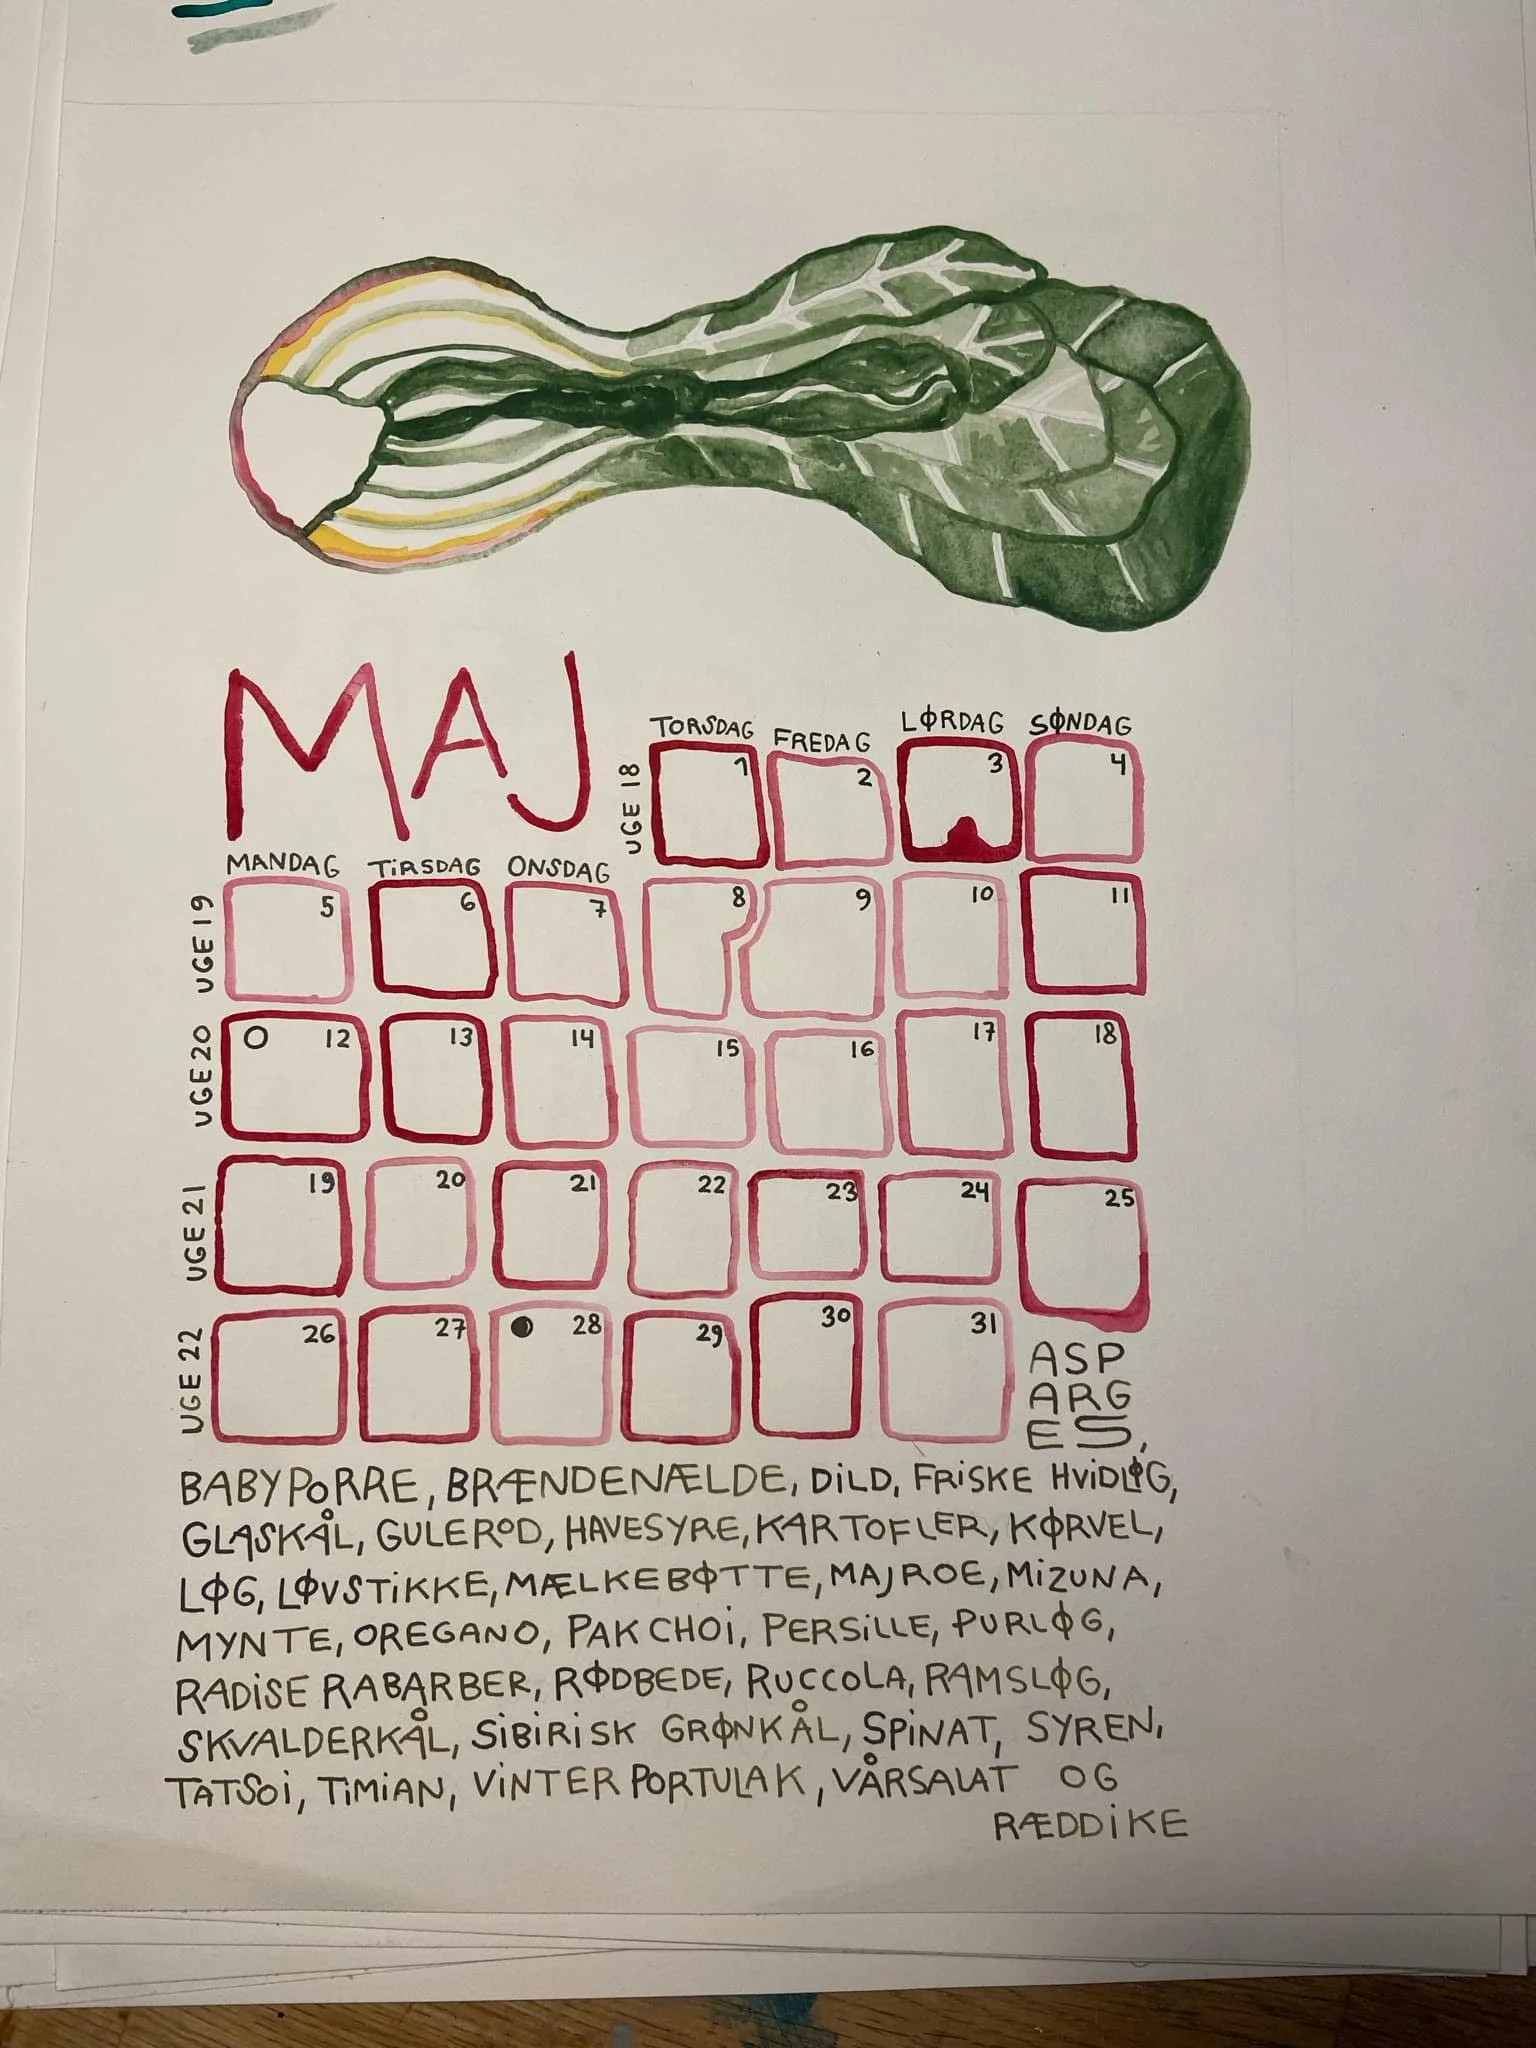 MAJ
TORSDAG FREDAG LØRDAG SØNDAG
UGE 18
1 2 3 4
MANDAG TIRSDAG ONSDAG
UGE 19
5 6 7 8 9 10 11
UGE 20
12 13 14 15 16 17 18
UGE 21
19 20 21 22 23 24 25
UGE 22
26 27 28 29 30 31
ASP
ARG
ES,
BABYPORRE, BRÆNDENÆLDE, DILD, FRISKE HVIDLØG,
GLASKÅL, GULEROD, HAVESYRE, KARTOFLER, KØRVEL,
LØG, LØVSTIKKE, MÆLKEBØTTE, MAJROE, MIZUNA,
MYNTE, OREGANO, PAK CHOI, PERSILLE, PURLØG,
RADISE RABARBER, RØDBEDE, RUCCOLA, RAMSLØG,
SKVALDERKÅL, SIBIRISK GRØNKÅL, SPINAT, SYREN,
TATSOI, TIMIAN, VINTER PORTULAK, VÅRSALAT OG
RÆDDIKE